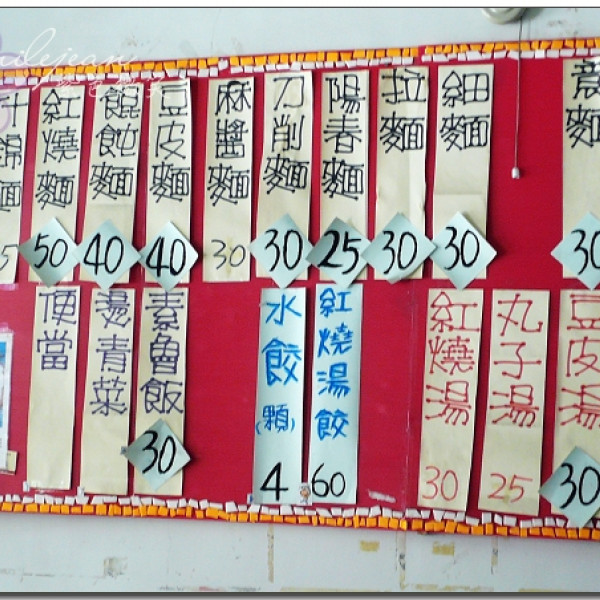 錦麵 5
紅燒麵 50
餛飩麵 40
豆皮麵 40
麻醬麵 30
刀削麵 30
陽春麵 25
拉麵 30
細麵 30
意麵 30
便當
燙青菜
素魯飯 30
水餃(顆) 4
紅燒湯餃 60
紅燒湯 30
丸子湯 25
豆皮湯 30